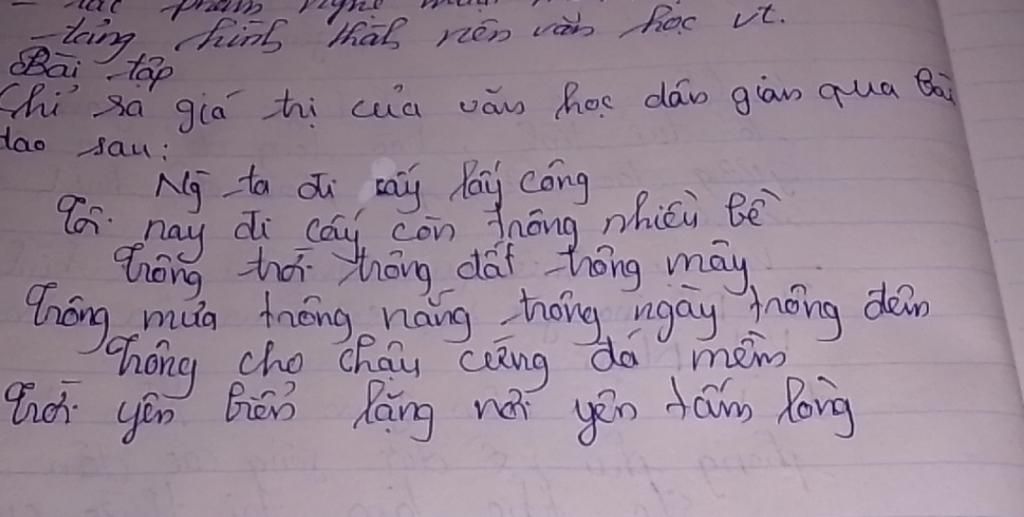 tác phẩm nghệ
- tảng hình thành nên văn học vt.
Bài tập
Chỉ ra giá trị của văn học dân gian qua Bài
dao sau:
Ng ta đi cấy lấy công
Tôi nay đi cấy còn trông nhiều bề
Trông trời trông đất trông mây
Trông mưa trông nắng trông ngày trông đêm
Trông cho chân cứng đá mềm
Trời yên biển lặng mới yên tấm lòng